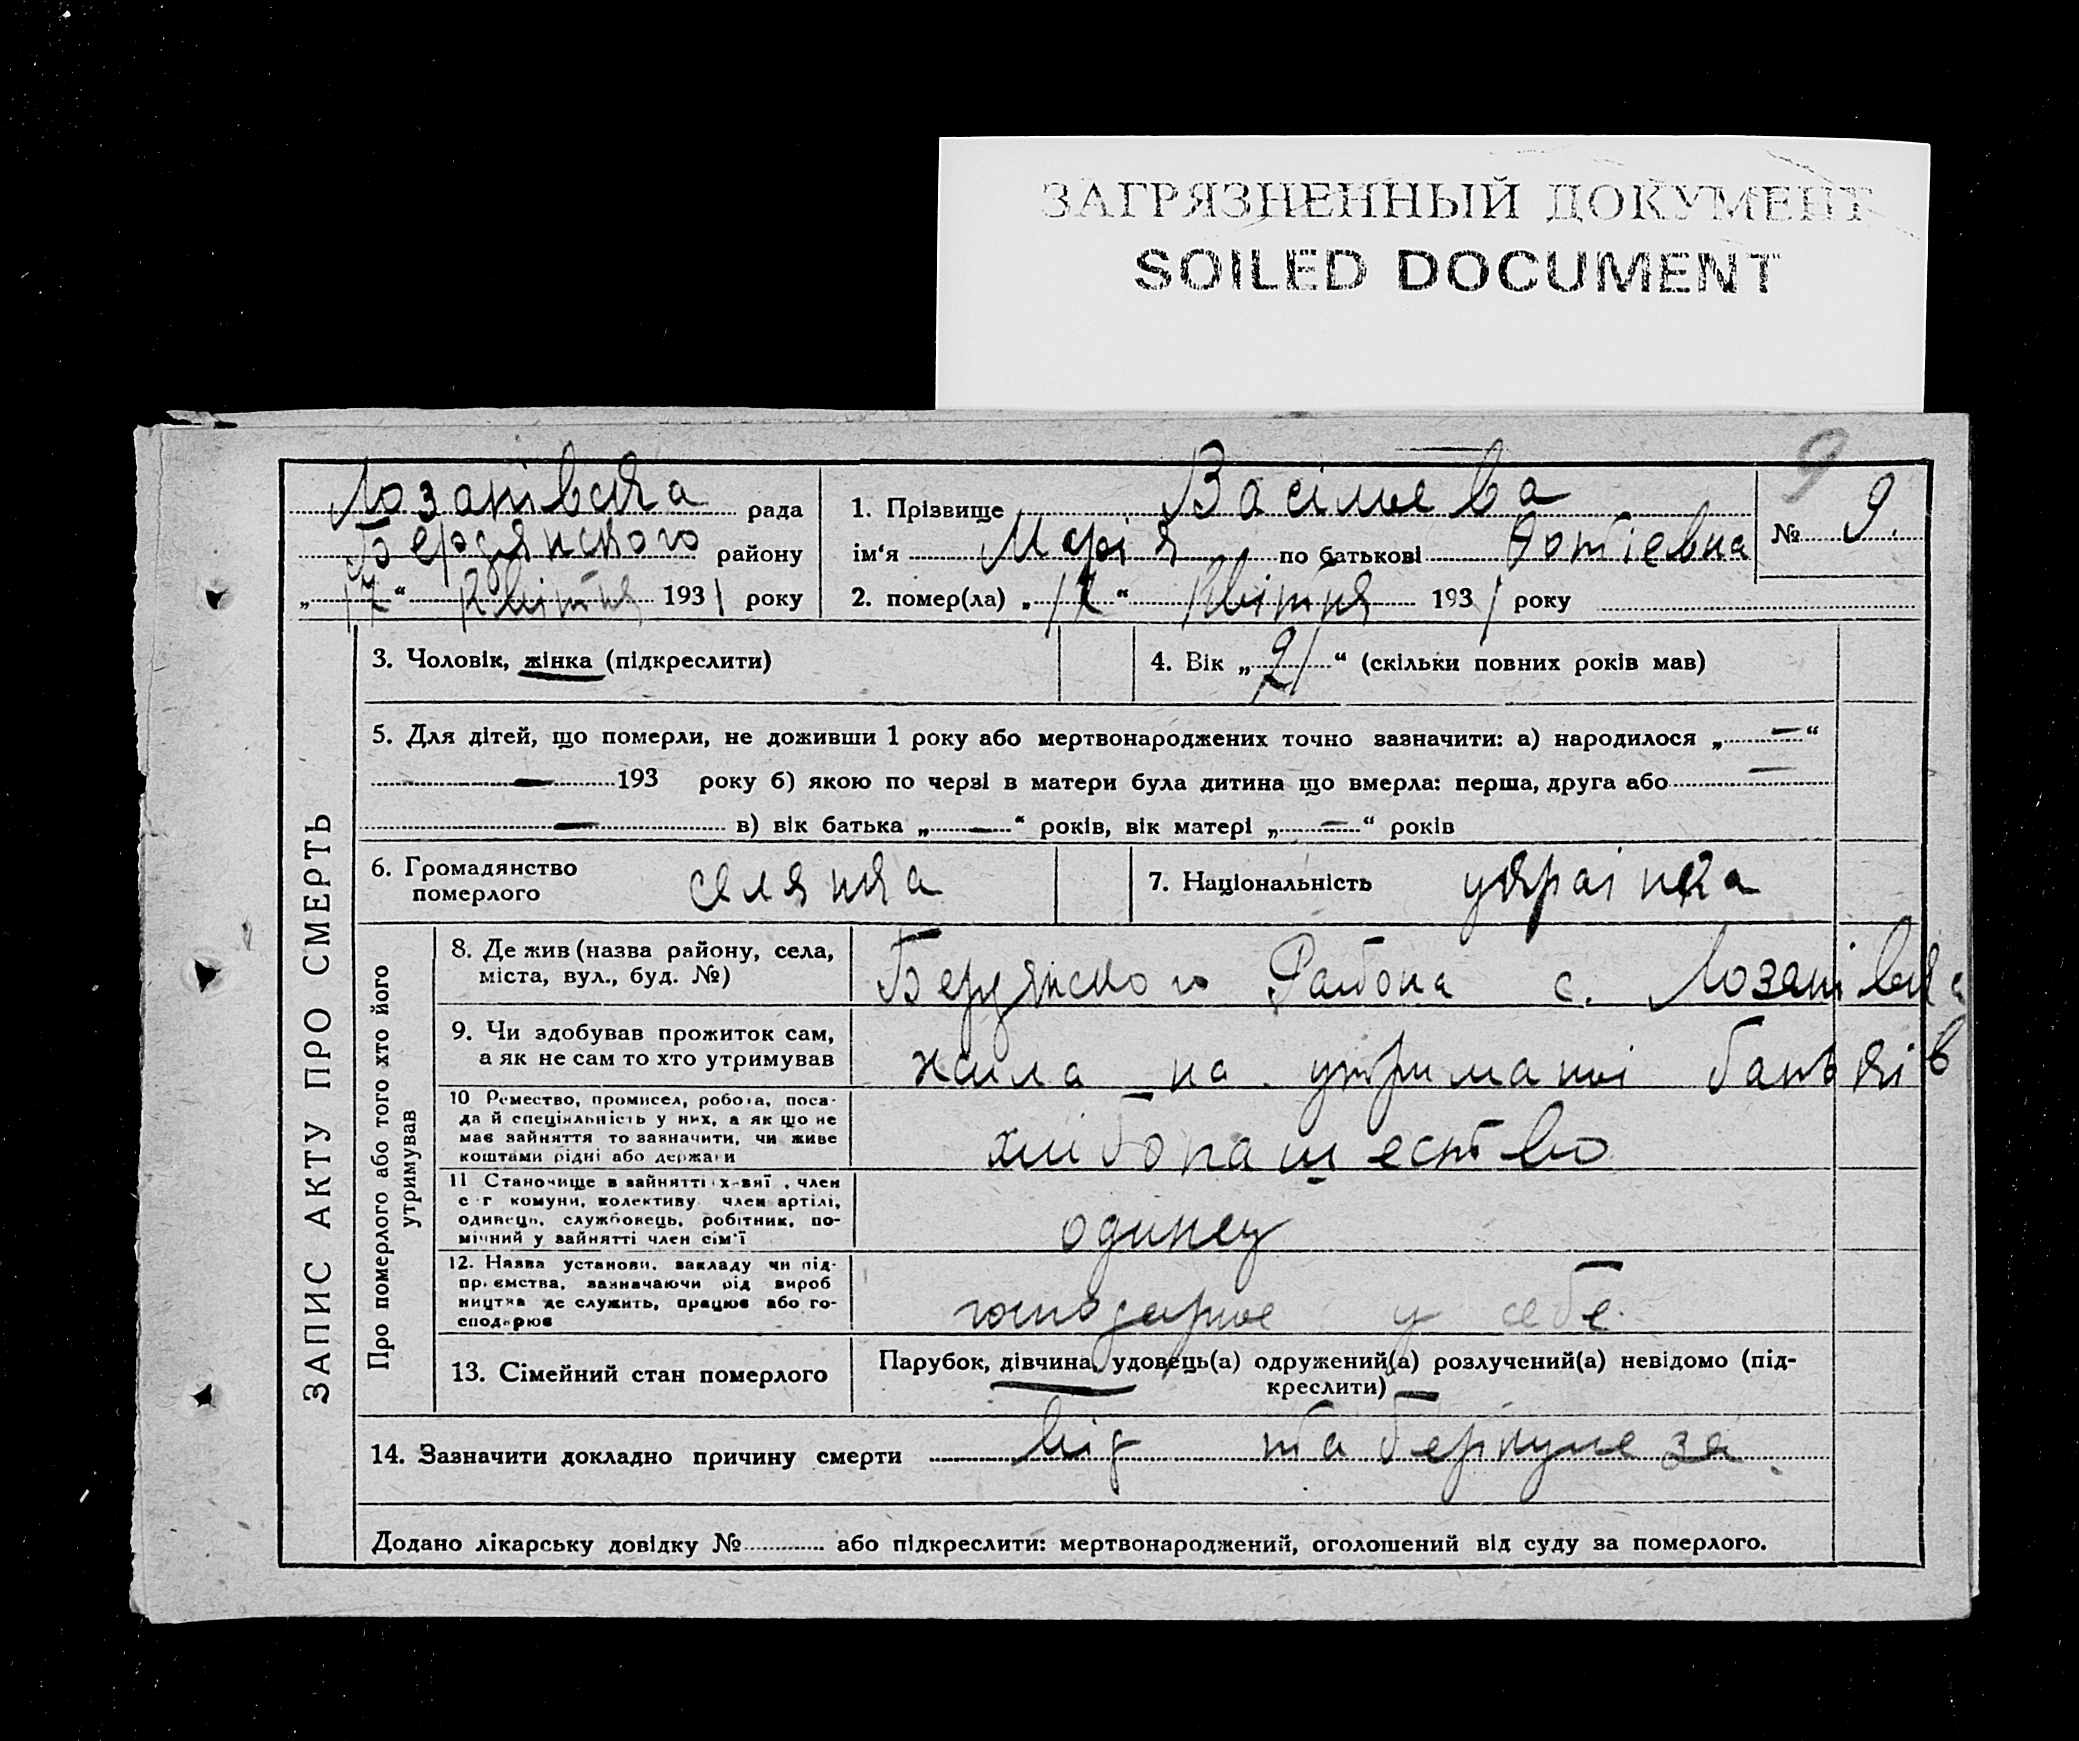 ЗАГРЯЗНЕННЫЙ ДОКУМЕНТ
SOILED DOCUMENT
9
Лозанівска рада
Бердянского району
„17“ Квітня 1931 року
1. Прізвище Васільева
ім‘я Марія по батькові
№ 9.
2. помер(ла) „17“ Квітня 1931 року
ЗАПИС АКТУ ПРО СМЕРТЬ
3. Чоловік, жінка (підкреслити)
4. Вік „21“ (скільки повних років мав)
5. Для дітей, що померли, не доживши 1 року або мертвонароджених точно зазначити: а) народилося „—“
— 193 року б) якою по черзі в матери була дитина що вмерла: перша, друга або —
— в) вік батька „—“ років, вік матері „—“ років
6. Громадянство
померлого
селянка
7. Національність украінка
Про померлого або того хто його
утримував
8. Де жив (назва району, села,
міста, вул., буд. №)
Бердянского Района с. Лозанівка
9. Чи здобував прожиток сам,
а як не сам то хто утримував
жила на утриманні батьків
10 Ремество, промисел, робота, поса-
да й спеціяльність у них, а як що не
має зайняття то зазначити, чи живе
коштами рідні або держави
хліборашество
11 Становище в зайнятті х-вні, член
с-г комуни, колективу член артілі,
одинець, службовець, робітник, по-
мічний у зайнятті член сім'ї
одинец
12. Назва установи, закладу чи під-
приємства, зазначаючи рід вироб
ництва де служить, працює або го-
сподарює
господарює у себе.
13. Сімейний стан померлого
Парубок, дівчина, удовець(а) одружений(а) розлучений(а) невідомо (під-
креслити)
14. Зазначити докладно причину смерти від таберкульоза.
Додано лікарську довідку № або підкреслити: мертвонароджений, оголошений від суду за померлого.